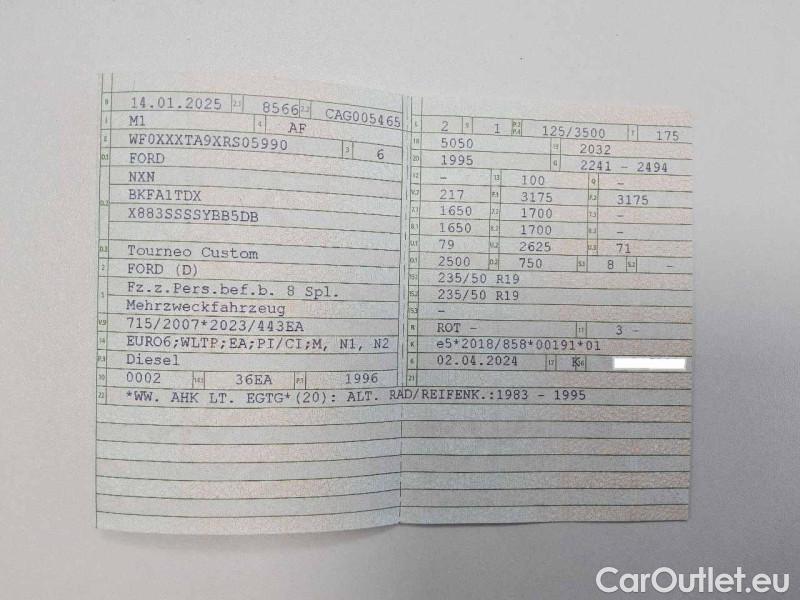 B 14.01.2025 2.1 8566 2.2 CAG005465
J M1 4 AF
E WF0XXXTA9XRS05990 3 6
D.1 FORD
NXN
D.2 BKFA1TDX
X883SSSSYBB5DB
D.3 Tourneo Custom
2 FORD (D)
5 Fz.z.Pers.bef.b. 8 Spl.
Mehrzweckfahrzeug
V.9 715/2007*2023/443EA
14 EURO6;WLTP;EA;PI/CI;M, N1, N2
P.3 Diesel
10 0002 14.1 36EA P.1 1996
22 *WW. AHK LT. EGTG*(20): ALT. RAD/REIFENK.:1983 - 1995
L 2 9 1 P.2 P.4 125/3500 T 175
18 5050 19 2032
20 1995 G 2241 - 2494
12 - 13 100 Q -
V.7 217 F.1 3175 F.2 3175
7.1 1650 7.2 1700 7.3 -
8.1 1650 8.2 1700 8.3 -
U.1 79 U.2 2625 U.3 71
O.1 2500 O.2 750 S.1 8 S.2 -
15.1 235/50 R19
15.2 235/50 R19
15.3 -
R ROT - 11 3 -
K e5*2018/858*00191*01
6 02.04.2024 17 K 16
21
CarOutlet.eu